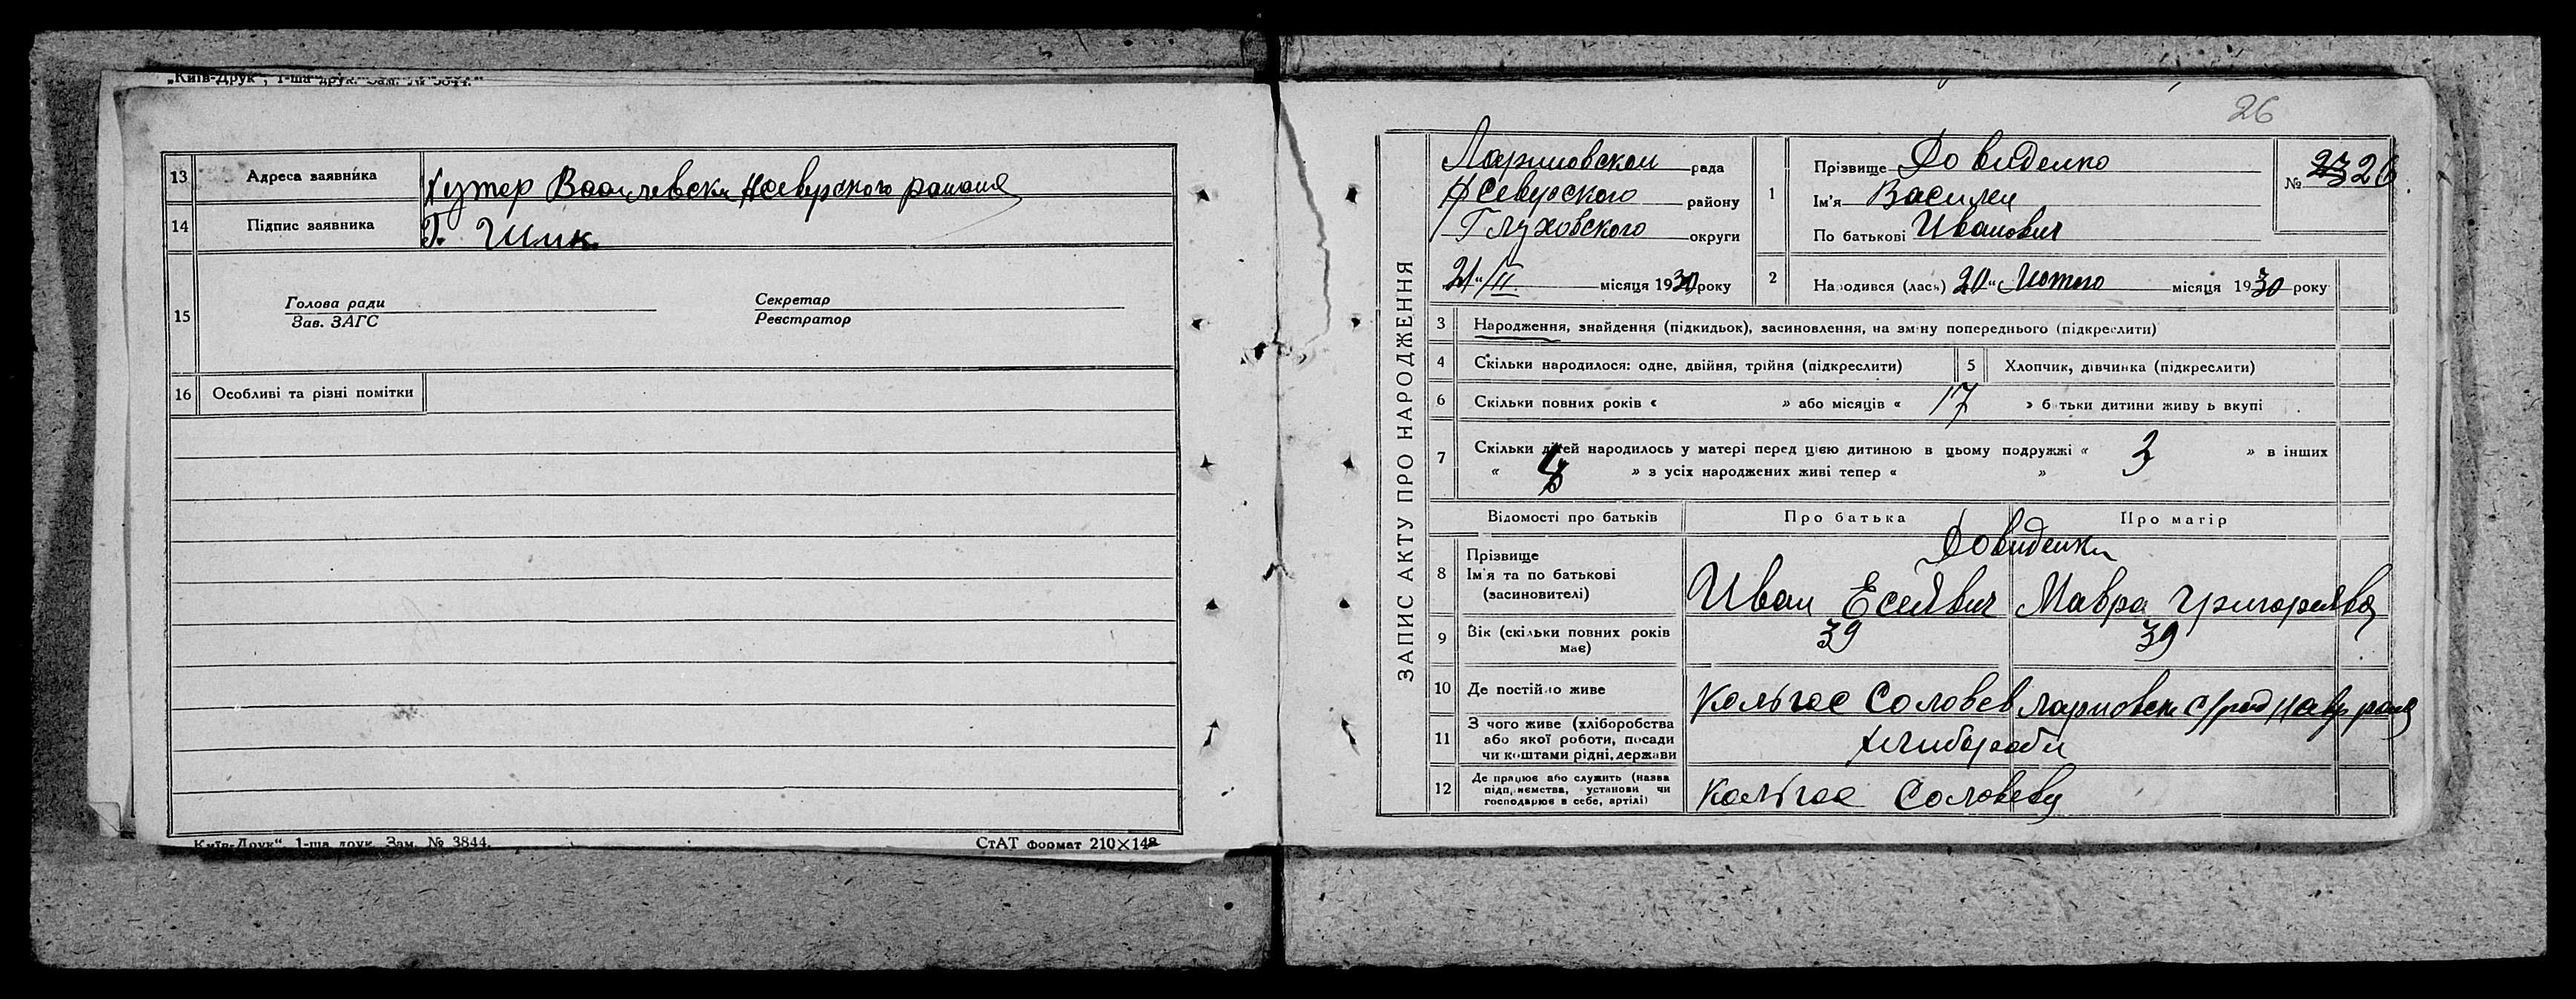 „Київ-Друк", 1-ша друк. Зам. № 3844.
13 Адреса заявника Хутор Василевски Н Северского района
14 Підпис заявника Г. Шик
15 Голова ради Секретар
Зав. ЗАГС Реєстратор
16 Особливі та різні помітки
Київ-Друк", 1-ша друк. Зам. № 3844.
СтАТ формат 210×148
26
ЗАПИС АКТУ ПРО НАРОДЖЕННЯ
рада
Н Северского району
Глуховского округи
21 " / II місяця 1930 року
1 Прізвище Довиденко
Ім'я Василий
По батькові Иванович
№ 23 26.
2 Народився (лась) 20 " Лютого місяця 1930 року
3 Народження, знайдення (підкидьок), засиновлення, на зміну попереднього (підкреслити)
4 Скільки народилося: одне, двійня, трійня (підкреслити)
5 Хлопчик, дівчинка (підкреслити)
6 Скільки повних років « » або місяців « 17 » батьки дитини живуть вкупі
7 Скільки дітей народилось у матері перед цією дитиною в цьому подружжі « 3 » в інших
« » з усіх народжених живі тепер « »
Відомості про батьків Про батька Про матір
8 Прізвище
Ім'я та по батькові
(засиновителі)
Довиденки
Иван Есеевич Мавра Григорьевна
9 Вік (скільки повних років має) 39 39
10 Де постійно живе Кольгос Соловев
11 З чого живе (хліборобства
або якої роботи, посади
чи коштами рідні, держави
хлиборобы
12 Де працює або служить (назва
підприємства, установи чи
господарює в себе, артілі)
Кольгос Соловеву